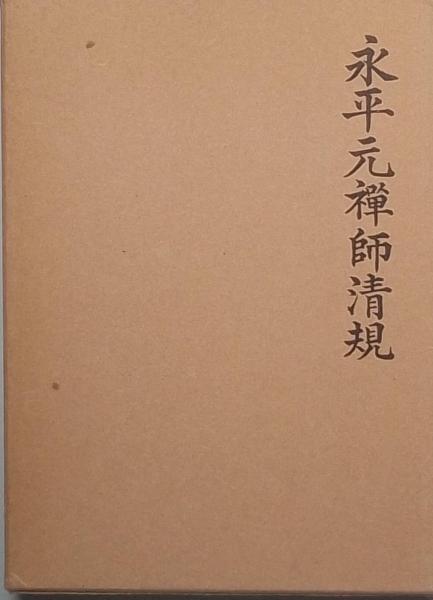 永平元禪師清規